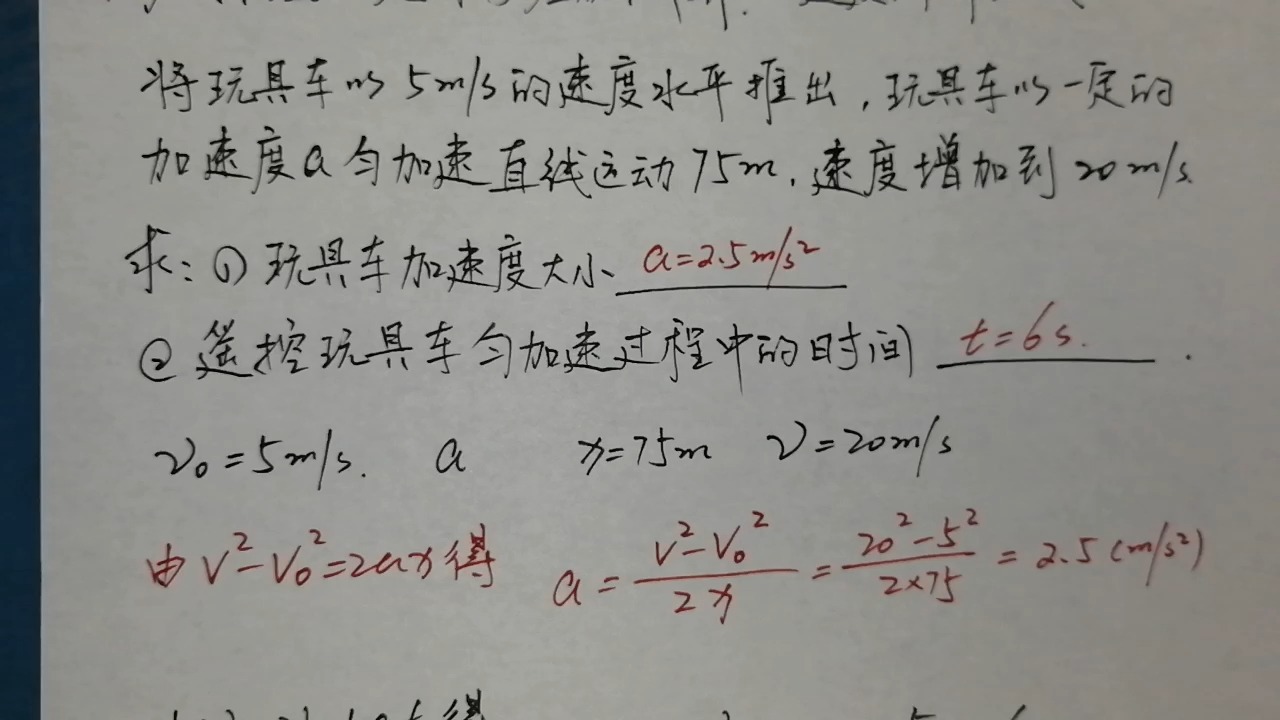 将玩具车以5m/s的速度水平推出,玩具车以一定的
加速度a匀加速直线运动75m,速度增加到20m/s.
求:① 玩具车加速度大小 a=2.5m/s²
② 遥控玩具车匀加速过程中的时间 t=6s.
v₀=5m/s. a x=75m v=20m/s
由 v²-v₀²=2ax 得 a = (v²-v₀²)/(2x) = (20²-5²)/(2×75) = 2.5(m/s²)